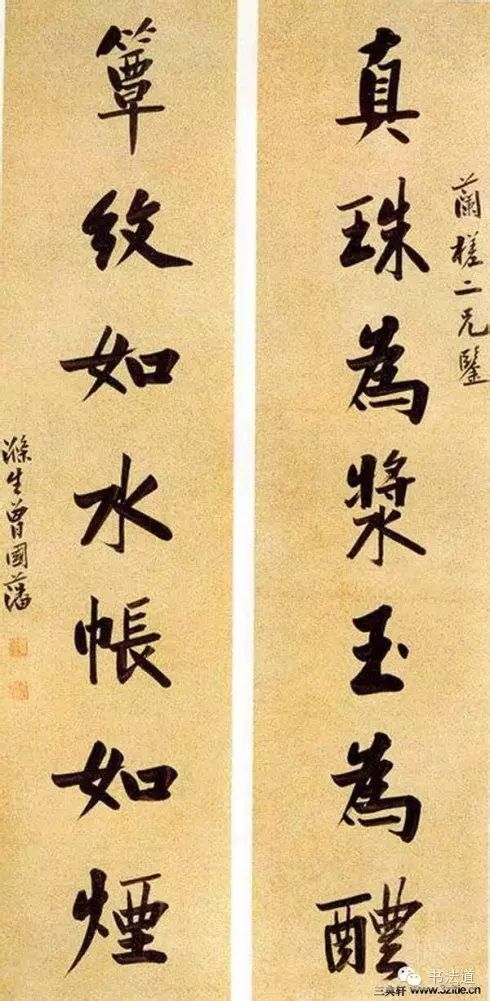 蘭槎二兄鑒
真珠為漿玉為醴
簟紋如水帳如煙
滌生曾國藩
书法道
三奥轩 www.3zitie.cn